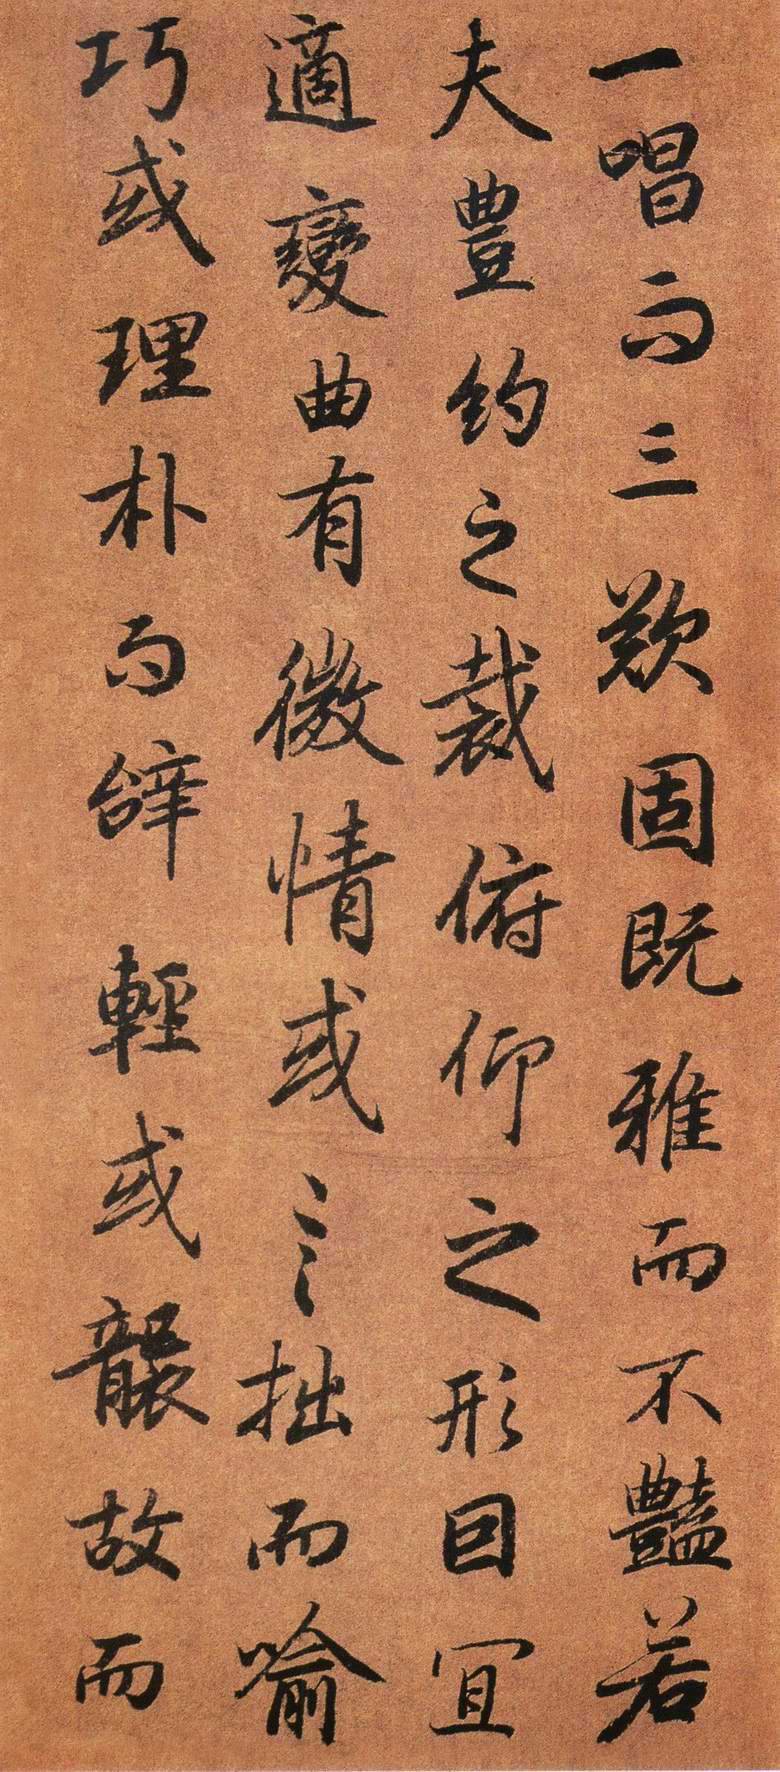 一唱而三歎固既雅而不豔若
夫豊約之裁俯仰之形因宜
適變曲有微情或言拙而喻
巧或理朴而辭輕或襲故而